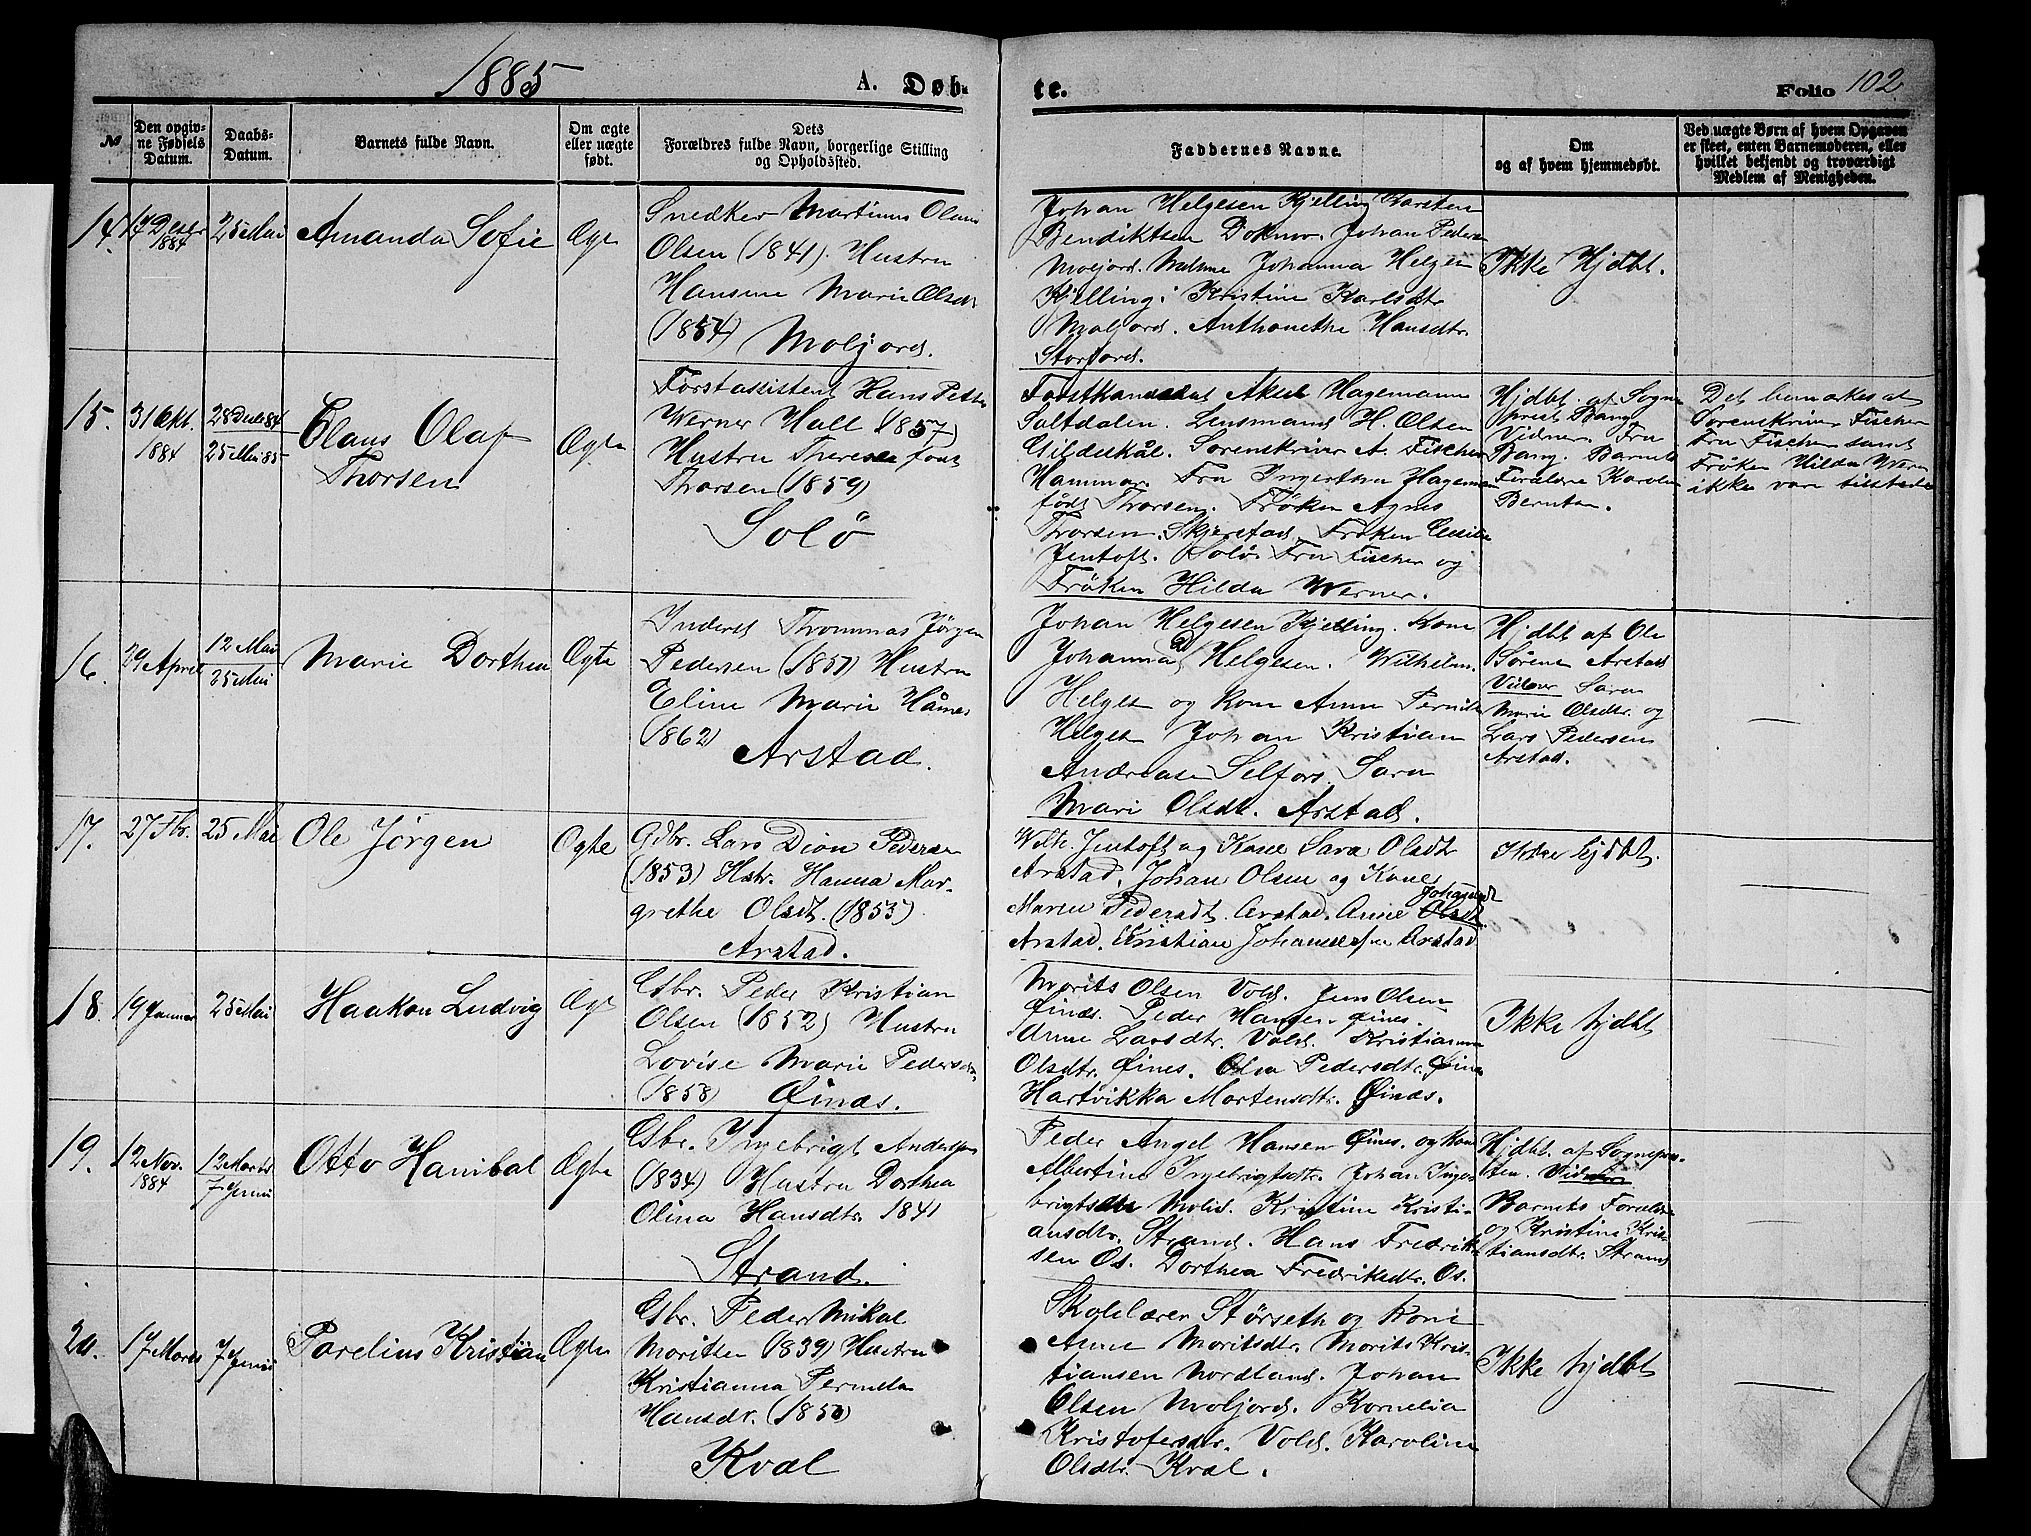 1885
A. Døb-
te.
Folio 102
№
Den opgiv-
ne Fødsels
Datum.
Daabs-
Datum.
Barnets fulde Navn.
Om ægte
eller uægte
født.
Dets
Forældres fulde Navn, borgerlige Stilling
og Opholdssted.
Faddernes Navne.
Om
og af hvem hjemmedøbt.
Ved uægte Børn af hvem Opgaven
er skeet, enten Barnemoderen, eller
hvilket bekjendt og troværdigt
Medlem af Menigheden.
14.
17 Decbr
1884
25 Mai
Amanda Sofie
Ægte
Snedker Martinus Olaus
Olsen (1841). Hustru
Hansine Marie Olsdt
(1854) Moljord.
Johan Helgesen Kjelling Karsten
Bendiktsen Johan Peders
Moljord. Johanna Helgesen
Kjelling; Kristine Karlsdtr
Moljord. Anthonethe Hansdtr.
Storjord.
Ikke Hjdbt.
15.
31 Okt.
1884
28 Decb 84
25 Mai 85
Claus Olaf
Thorsen
Ægte
Forstassistent Hans Petter
Werner Hall (1857)
Hustru Therese født
Thorsen (1859)
Solö
Forstkandidat Aksel Hagemann
Saltdalen. Lensmand H. Olsen
Gildeskål. Sorenskriver A. Fischer
Hammar. Fru Ingerthea Hagemann
født Thorsen. Frøken Agnes
Thorsen. Skjerstad. Frøken Cecilie
Jentoft. Solö. Fru Fischer og
Frøken Hilda Werner.
Hjdbt. af Sogne
prest Bang
Vidner. Fru
Bang. Barnets
Forældre Karolin
Berntsen.
Det bemærkes at
Sorenskriver Fischer
Fru Fischer samt
Frøken Hilda Werner
ikke var tilstede
16.
29 April
12 Mai
25 Mai
Marie Dorthea
Ægte
Inderst Thommas Jørgen
Pedersen (1857) Hustru
Eline Marie Håmas
(1862)
Arstad.
Johan Helgesen Kjelling. Kone
Johanna Helgesen. Wilhelm.
Helges og kone Anne Pernille
Helges Johan Kristian
Andreasen Selfors. Sara
Mari Olsdt. Arstad.
Hjdbt af Ole
Sørens Arstad
Vidner Sara
Marie Olsdtr. og
Lars Pedersen
Arstad.
17.
27 Fbr.
25 Mai
Ole Jørgen
Ægte
Gdbr. Lars Dion Pedersen
(1853) Hstr. Hanna Mar-
grethe Olsdt. (1853).
Arstad.
Wilh. Jentoft og Kone Sara Olsdtr
Arstad. Johan Olsen og Kone
Maren Pedersdt. Arstad. Anne Olsdt Johansdt
Arstad. Kristian Johannesen Arstad
Ikke hjdbt.
18.
19 Januar
25 Mai
Haakon Ludvig
Ægte
Gbr. Peder Kristian
Olsen (1852) Hustru
Lovise Marie Pedersdtr.
(1858) Øinæs.
Morits Olsen Vold. Jens Olsen
Øinæs. Peder Hansen Øines.
Anne Larsdtr. Vold. Kristianna
Olsdtr. Øines. Olva Pedersdtr. Øines
Hartvikka Mortensdtr. Øinæs.
Ikke hjdbt
19.
12 Nov.
1884
12 Marts
7 Juni
Otto Hanibal
Ægte
Gbr. Ingebrigt Andersen
(1834) Hustru Dorthea
Olina Hansdtr. 1841
Strand.
Peder Angel Hansen Øines. og kone
Albertine Ingebrigtsdtr. Johan Inge-
brigtsen Molid. Kristine Kristi-
ansdtr. Strand. Hans Fredrik-
sen Os. Dorthea Fredriksdtr. Os.
Hjdbt. af Sognepre-
sten. Vidner
Barnets Forældre
og Kristine Kris-
tiansdtr. Strand
20.
17 Marts
7 Juni
Parelius Kristian
Ægte
Gbr. Peder Mikal
Moritsen 1839) Hustru
Kristianna Pernela
Hansdr. (1850)
Kval
Skolelærer Størseth og kone
Anne Moritsdtr. Morits Kris-
tiansen Nordland. Johan
Olsen Moljord. Kornelia
Kristofersdtr. Vold. Karoline
Olsdtr. Kval.
Ikke hjdbt